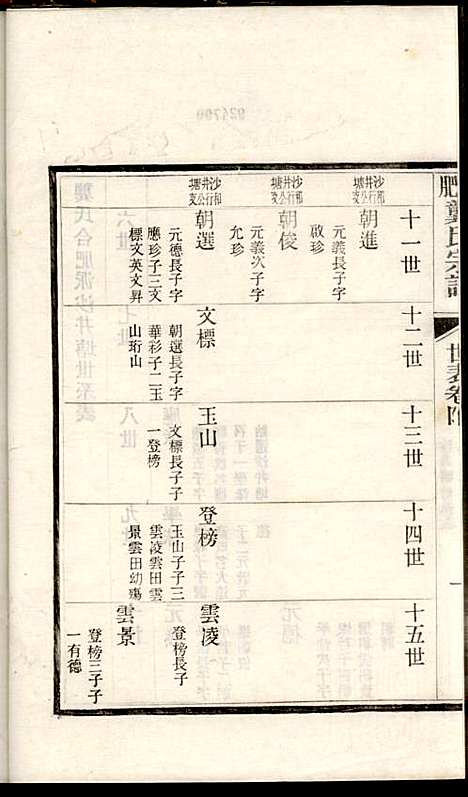 肥龔氏宗譜
世表卷附
一
十一世
沙井塘
和行公支
朝進
元義長子字
啟珍
沙井塘
和行公支
朝俊
元義次子字
允珍
沙井塘
和行公支
朝選
元德長子字
應珍子三文
標文英文昇
十二世
文標
朝選長子字
華彩子二玉
山珩山
十三世
玉山
文標長子子
一登榜
十四世
登榜
玉山子子三
雲凌雲田雲
景雲田幼殤
十五世
雲凌
登榜長子
雲景
登榜三子子
一有德
龔氏合肥派沙井塘世系表
六世
七世
八世
九世